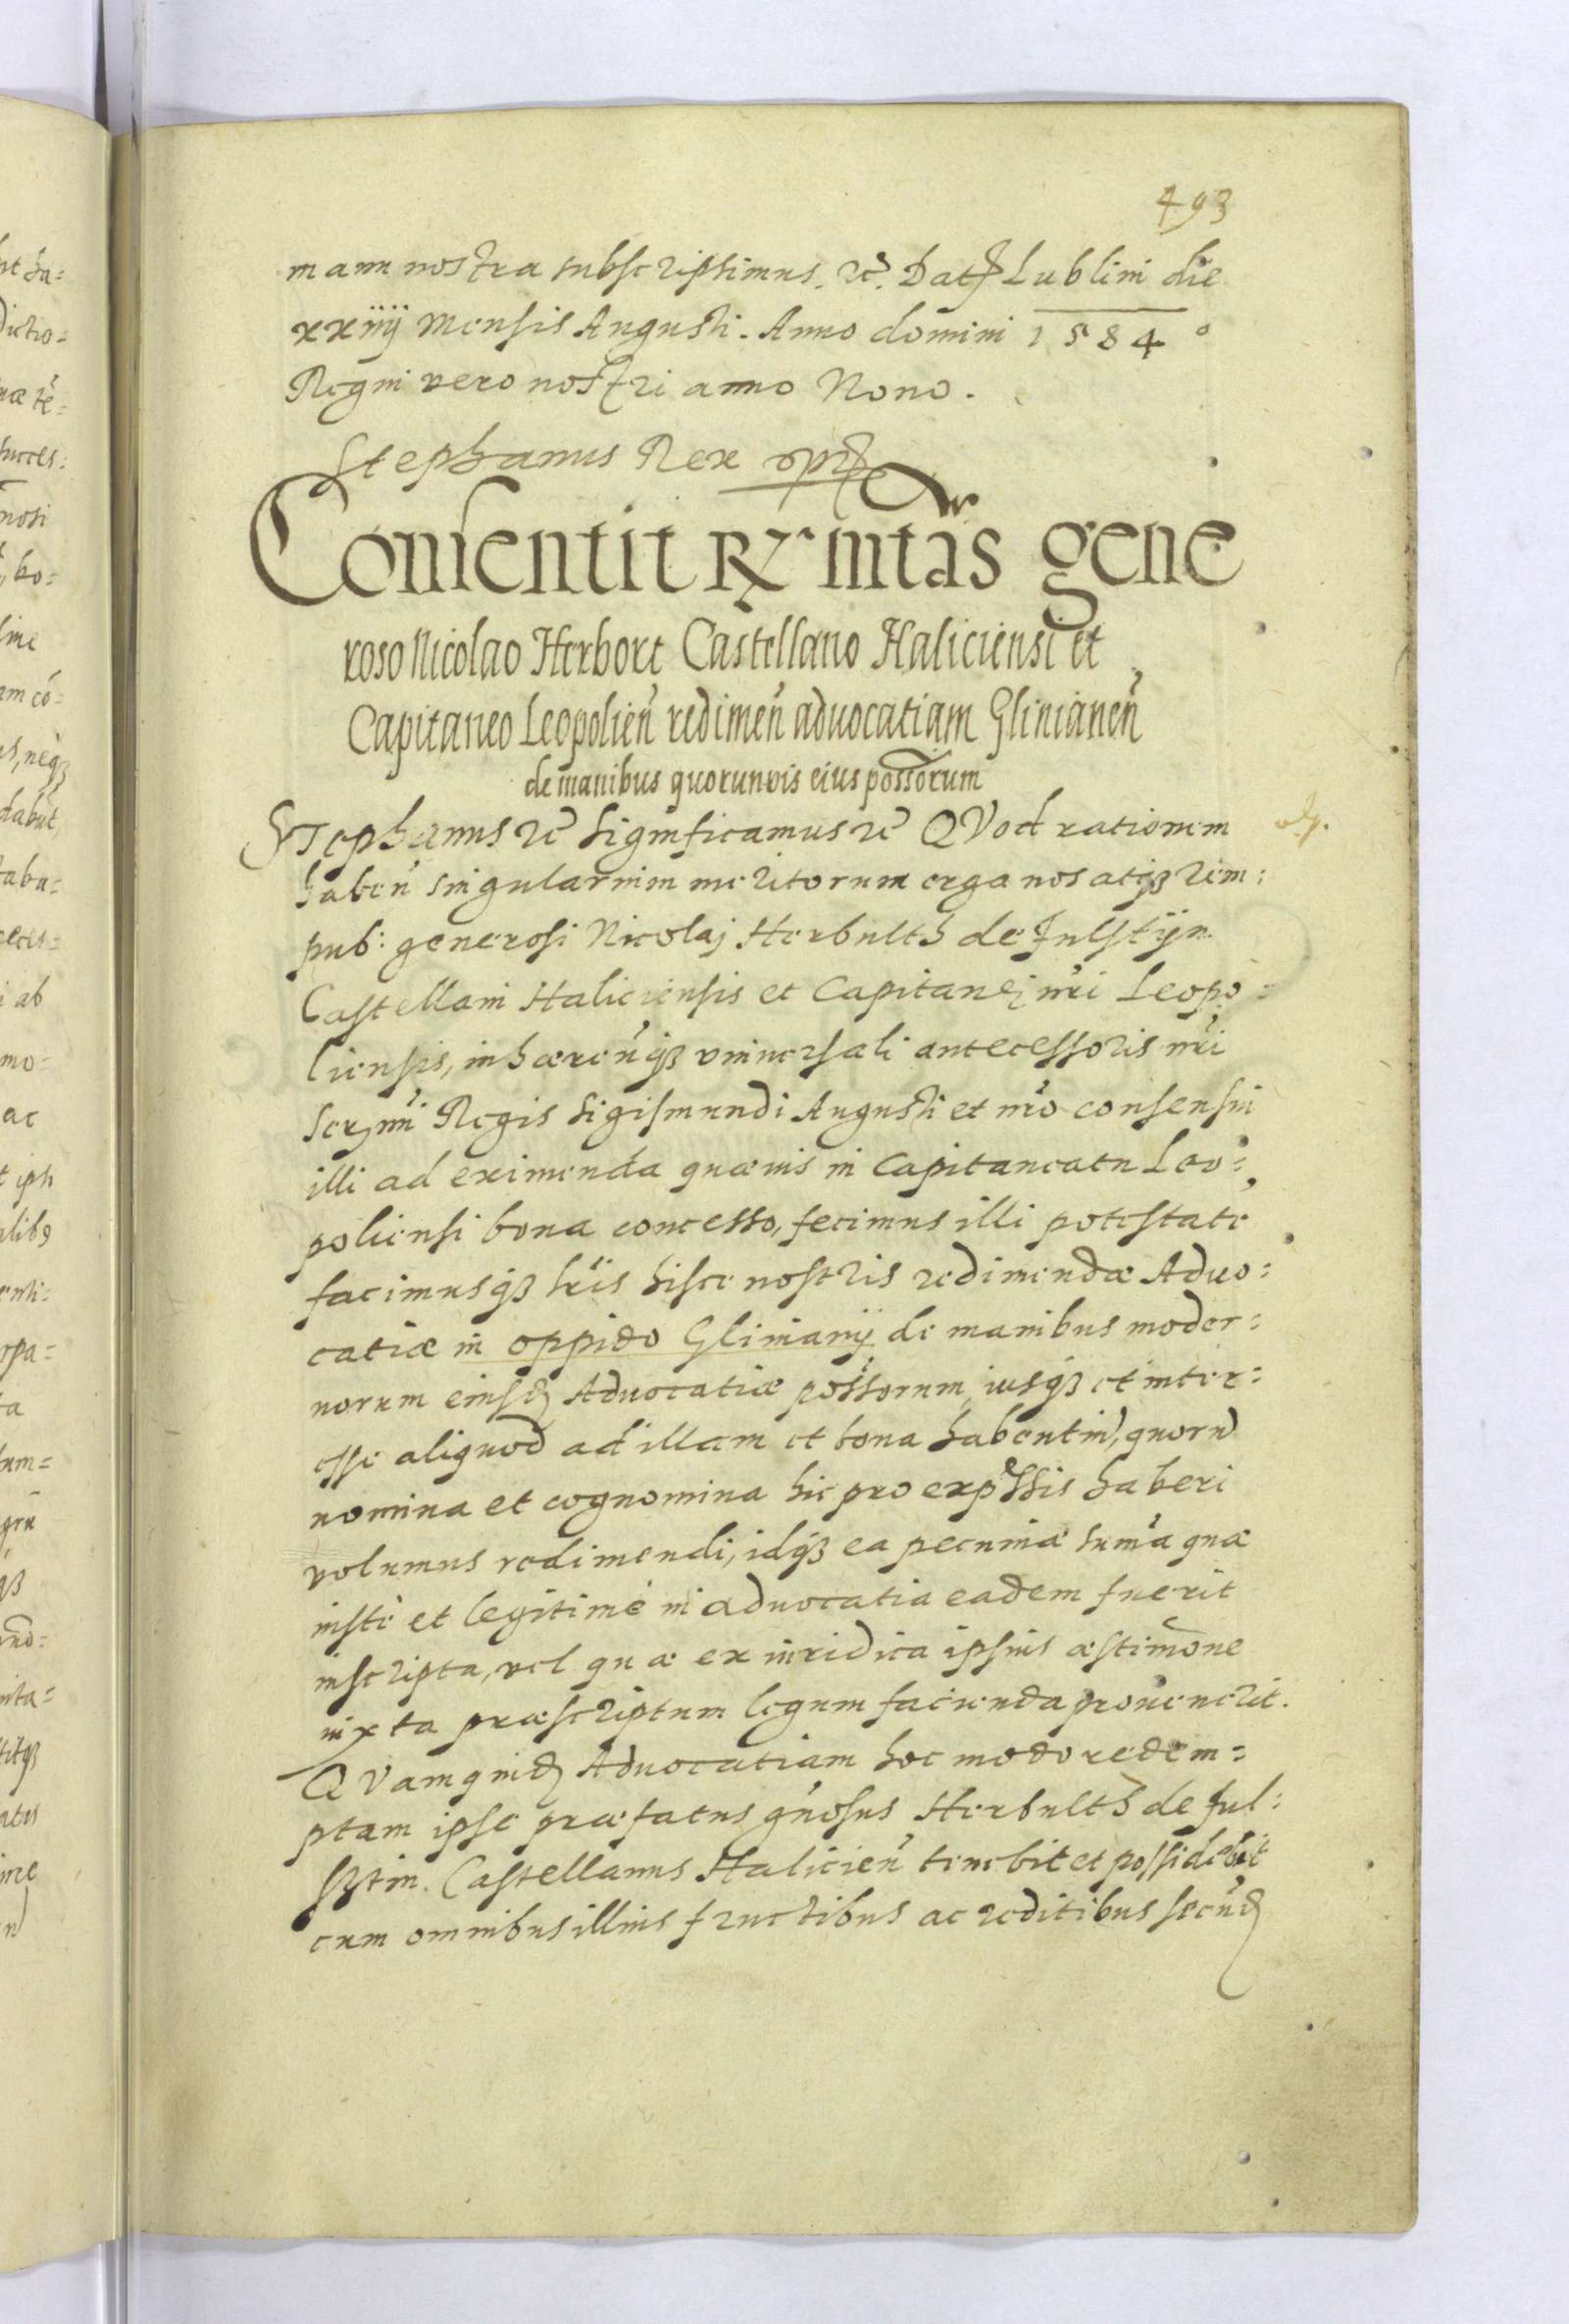 493
manu nostra subscripsimus. etc. Datt Lublini die
xxiiij Mensis Augusti. Anno domini 1584°
Regni vero nostri anno Nono.
Stephanus Rex
Consentit Rx mtas gene
roso Nicolao Herbort Castellano Haliciensi et
Capitaneo Leopolien redimen advocatiam Glinianen
de manibus quorumvis eius possorum
STephanus etc Significamus etc QVod rationem
haben singularium meritorum erga nos atqz rem:
pub: generosi Nicolaj Herbulth de Fulstijn
Castellani Haliciensis et Capitanei nri Leopo=
liensis, inhærenqz vniuersali antecessoris nri
Sermi Regis Sigismundi Augusti et nro consensui
illi ad eximenda quæuis in Capitaneatu Leo=
poliensi bona concesso, fecimus illi potestate
facimusqz lris hisce nostris redimendæ Aduo:
catiæ in oppido Glinianij de manibus moder:
norum eiusd Aduocatiæ possorum, iusqz et inter:
esse aliquod ad illam et bona habentiu, quoru
nomina et cognomina hic pro expressis haberi
volumus redimendi, idqz ea pecuniæ suma quæ
iuste et legitime in aduocatia eadem fuerit
inscripta, vel quæ ex iuridica ipsius æstimone
iuxta præscriptum legum facienda prouenerit.
QVamquid Aduocatiam hoc modo redem=
ptam ipse præfatus gnosus Herbulth de Ful:
sztin. Castellanus Halicien tenebit et possidebit
cum omnibus illius fructibus ac reditibus secund